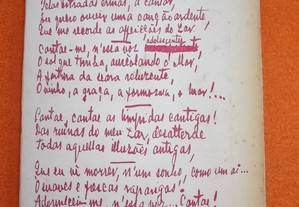 Pelas estradas ermas, a cantar,
Eu quero ouvir uma canção ardente,
Que me recorde as afflicções do Lar.
Cantae-me, n'essa voz
O sol que tomba, aureolando o Mar,
A fartura da seara reluzente,
O vinho, a graça, a formosura, o luar!
Cantae, cantae as limpidas cantigas!
Das ruinas do meu Lar desatterde
Todas aquellas illusões antigas,
Que eu vi morrer, n'um sonho, como um ai...
O suaves e frescas raparigas!
Adormecei-me, n'essa voz... Cantae!